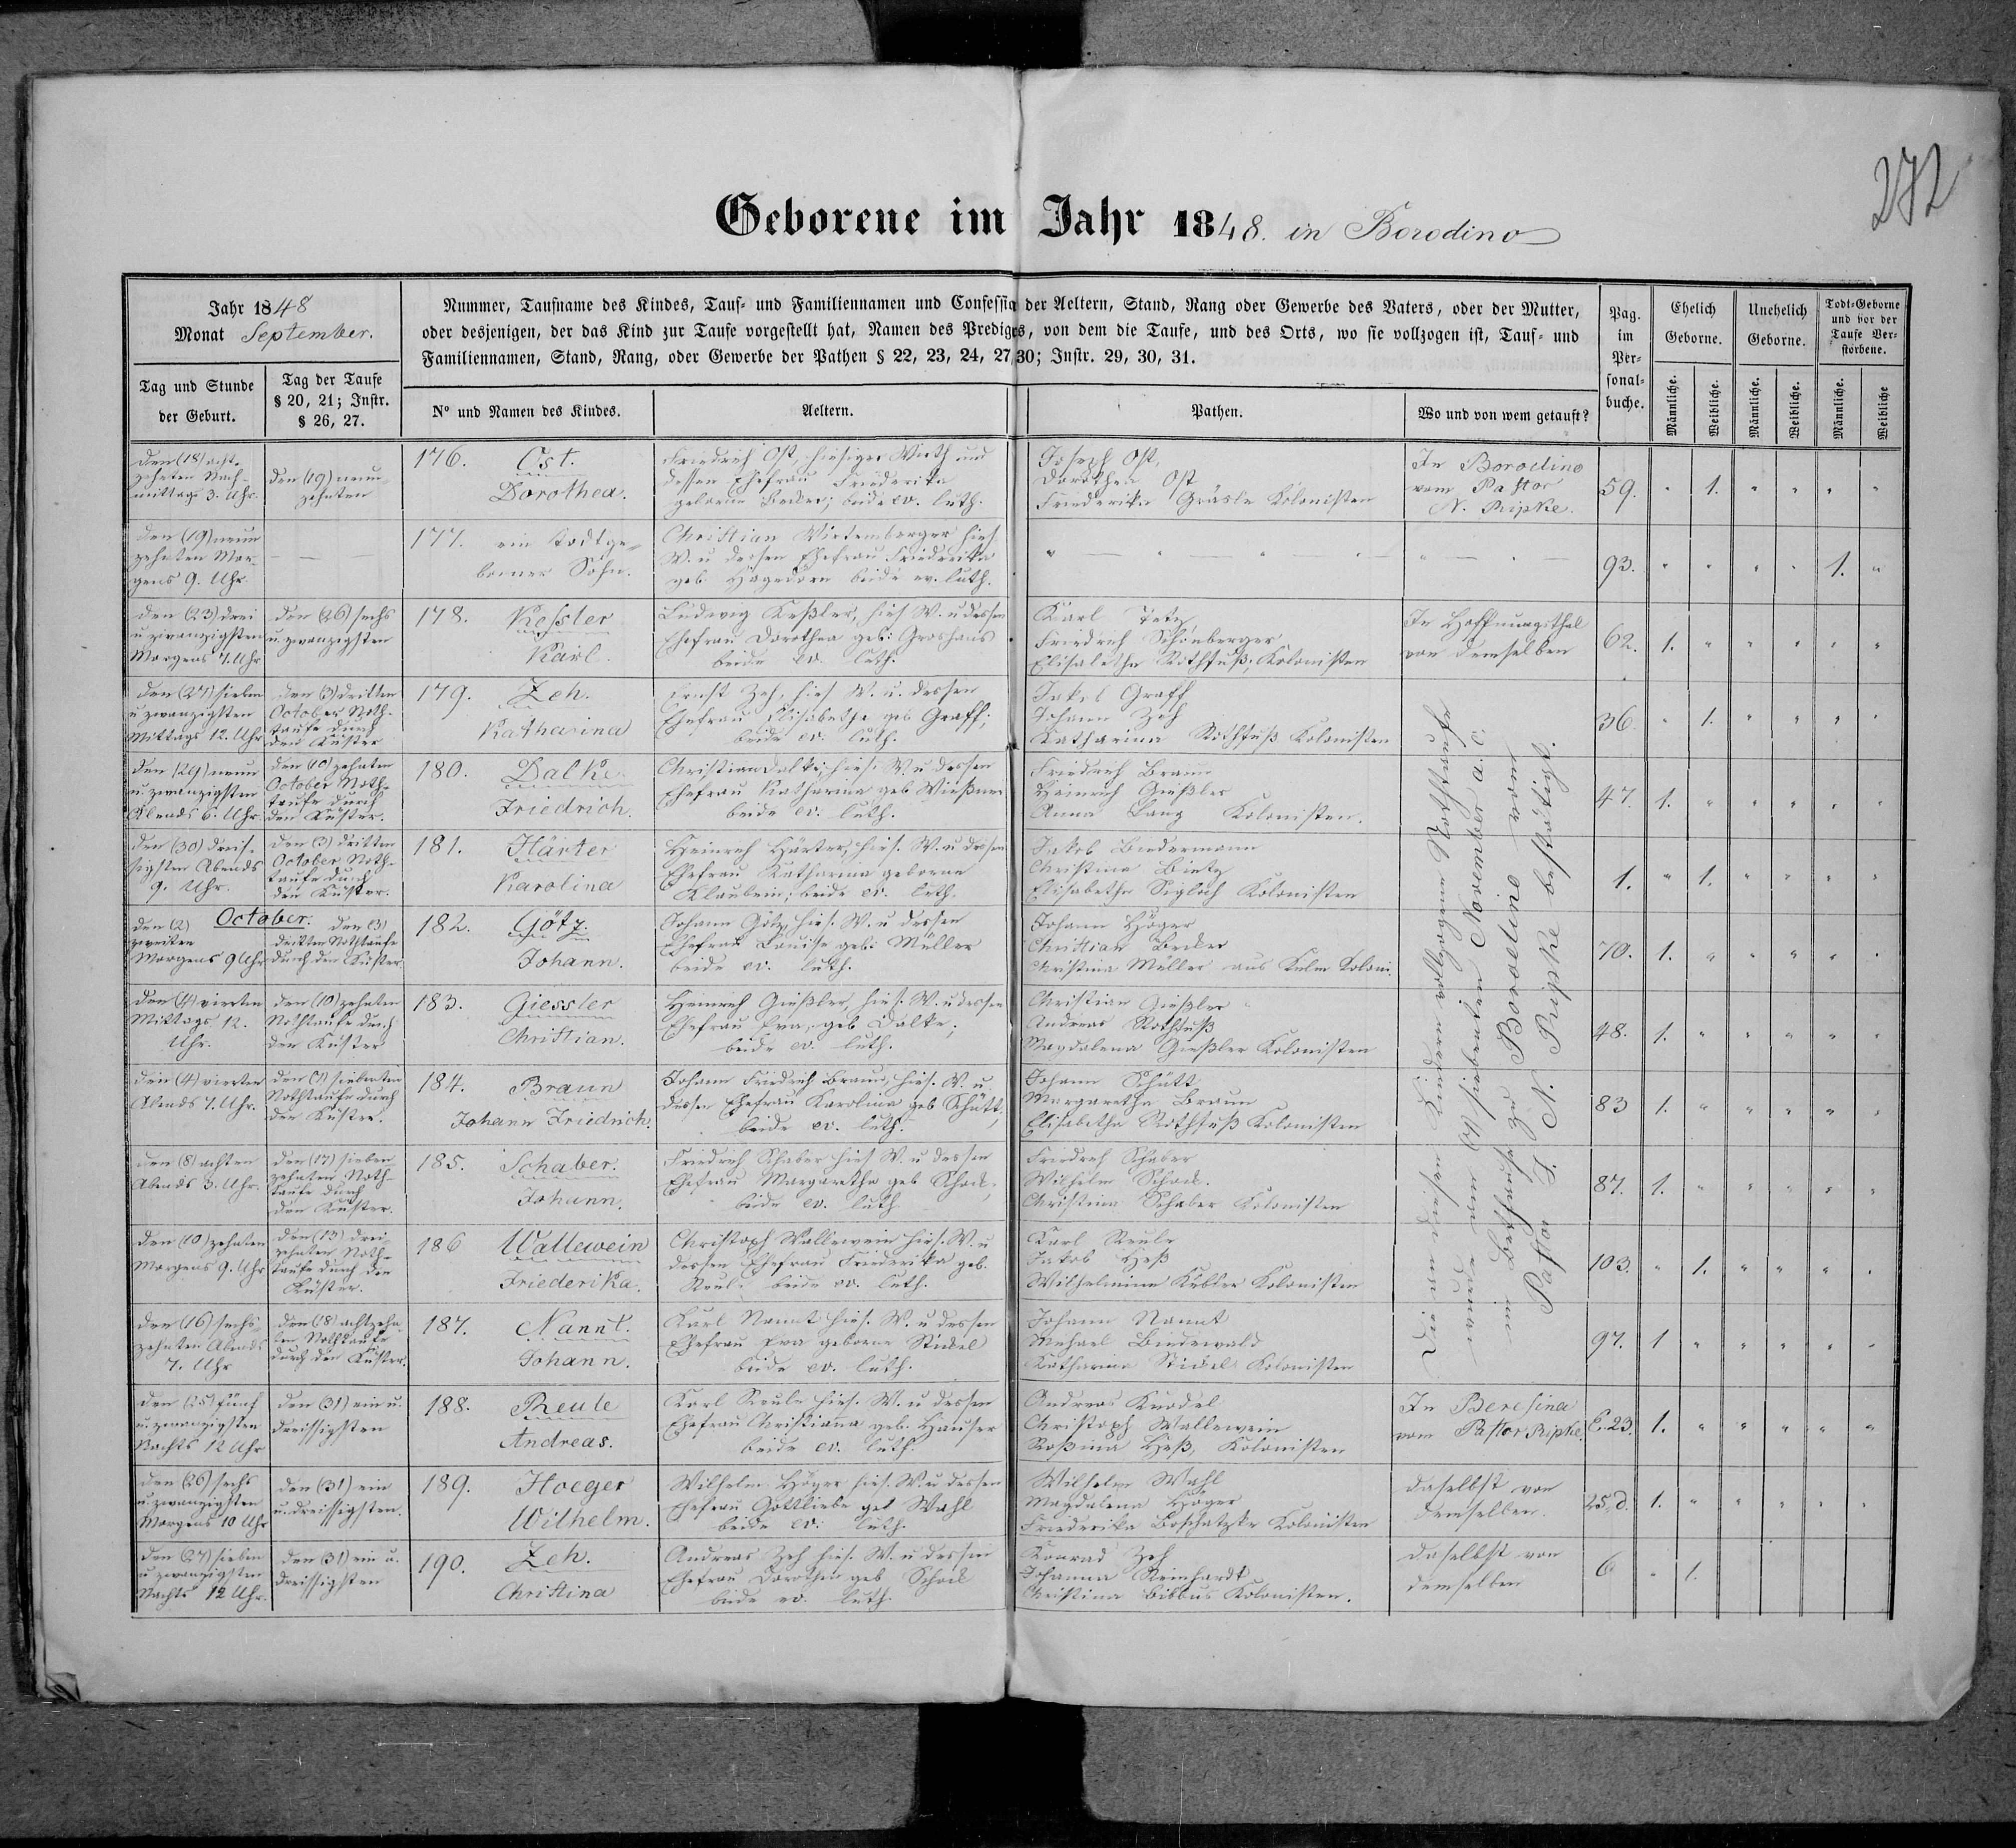 272
Geborene im Jahr 1848. in Borodino
Jahr 1848
Monat September.
Nummer, Taufname des Kindes, Tauf- und Familiennamen und Confessio der Aeltern, Stand, Rang oder Gewerbe des Vaters, oder der Mutter,
oder desjenigen, der das Kind zur Taufe vorgestellt hat, Namen des Predigers, von dem die Taufe, und des Orts, wo sie vollzogen ist, Tauf- und
Familiennamen, Stand, Rang, oder Gewerbe der Pathen § 22, 23, 24, 27, 30; Instr. 29, 30, 31.
Pag.
im
Per-
sonal-
buche.
Ehelich
Geborne.
Unehelich
Geborne.
Todt-Geborne
und vor der
Taufe Ver-
storbene.
Tag und Stunde
der Geburt.
Tag der Taufe
§ 20, 21; Instr.
§ 26, 27.
N° und Namen des Kindes.
Aeltern.
Pathen.
Wo und von wem getauft?
Männliche.
Weibliche.
Männliche.
Weibliche.
Männliche.
Weibliche
den (18) acht-
zehnten Nach-
mittags 3. Uhr.
den (19) neun-
zehnten
176. Ost.
Dorothea.
Friedrich Ost, hiesiger Wirth und
dessen Ehefrau Friederika
geborne Becker; beide ev. luth.
Joseph Ost,
Dorothea Ost
Friederika Gräsle Kolonisten
In Borodino
vom Pastor
N. Ripke.
59. " 1. " " " "
den (19) neun
zehnten Mor-
gens 9. Uhr.
— —
177. ein todtge-
borner Sohn.
Christian Wirtemberger hies.
W. u dessen Ehefrau Friederika
geb. Hagedorn beide ev. luth.
" — " — " — " —
" — " —
93. " " " " 1. "
den (23) drei
u. zwanzigsten
Morgens 7. Uhr
den (26) sechs
u. zwanzigsten
178. Kessler
Karl.
Ludwig Keßler, hies W. u dessen
Ehefrau Dorothea geb: Groshans
beide ev. luth.
Karl Tetz,
Friedrich Schönberger
Elisabetha Rothfuß, Kolonisten
In Hoffnungsthal
von demselben
62. 1. " " " " "
den (27) sieben
u zwanzigsten
Mittags 12. Uhr
den (3) dritten
October Noth-
taufe durch
den Küster
179. Zeh.
Katharina
Ernst Zeh, hies W. u. dessen
Ehefrau Elisabetha geb Graff;
beide ev. luth.
Jakob Graff
Johann Zeh
Katharina Rothfuß Kolonisten
36. " 1. " " " "
den (29) neun
u. zwanzigsten
Abends 6. Uhr.
den (10) zehnten
October Noth-
taufe durch
den Küster.
180. Dalke
Friedrich.
Christian Dalke; hies. W. u dessen
Ehefrau Katharina geb Wießner
beide ev. luth.
Friedrich Braun
Heinrich Gießler
Anna Lang Kolonisten.
47. 1. " " " " "
den (30) dreis-
sigsten Abends
9. Uhr.
den (3) dritten
October Noth-
taufe durch
den Küster.
181. Härter
Karolina
Heinrich Härter, hies. W. u dessen
Ehefrau Katharina geborne
Klaubein; beide ev. luth.
Jakob Biedermann
Christina Bietz
Elisabetha Sigloch Kolonisten
1. " 1. " " " "
October.
den (2)
zweiten
Morgens 9 Uhr
den (3)
dritten Nothtaufe
durch den Küster
182. Götz.
Johann.
Johann Götz hies. W. u dessen
Ehefrau Louise geb: Müller
beide ev. luth.
Johann Höger
Christian Becker
Christina Müller aus Kulm Koloni.
70. 1. " " " " "
den (4) vierten
Mittags 12.
Uhr.
den (10) zehnten
Nothtaufe durch
den Küster
183. Giessler
Christian.
Heinrich Gießler, hies. W. u dessen
Ehefrau Eva, geb Dalke;
beide ev. luth.
Christian Gießler
Andreas Rothfuß
Magdalena Gießler Kolonisten
48. 1. " " " " "
den (4) vierten
Abends 7. Uhr.
den (7) siebenten
Nothtaufe durch
den Küster.
184. Braun
Johann Friedrich.
Johann Friedrich Braun, hies. W. u.
dessen Ehefrau Karolina geb Schütt,
beide ev. luth.
Johann Schütt
Margaretha Braun
Elisabetha Rothfuß Kolonisten
83 1. " " " " "
den (8) achten
Abends 3. Uhr.
den (17) sieben
zehnten Noth-
taufe durch
den Küster.
185. Schaber.
Johann.
Friedrich Schaber hies W. u dessen
Ehefrau Margaretha geb Schock,
beide ev. luth
Friedrich Schaber
Wilhelm Schock.
Christina Schaber Kolonisten
87. 1. " " " " "
den (10) zehnten
Morgens 9. Uhr
den (13) drei-
zehnten Noth-
taufe durch den
Küster.
186 Wallewein
Friederika.
Christoph Wallewein hies. W. u
dessen Ehefrau Friederika geb.
Reule beide ev. luth.
Karl Reule
Jakob Heß
Wilhelmina Kubler Kolonisten
103. " 1. " " " "
den (16) sechs-
zehnten Abends
7. Uhr
den (18) achtzehn-
ten Nothtaufe
durch den Küster.
187. Nannt.
Johann.
Karl Nannt hies. W. u dessen
Ehefrau Eva geborne Stickel
beide ev. luth.
Johann Nannt
Michael Bindewald
Katharina Stickel Kolonisten
97. 1 " " " " "
Die an diesen Kindern vollzogene Nothtaufe
wurde am (7) siebenten November a. c.
im Bethause zu Borodino vom
Pastor F. N. Ripke bestätigt.
den (25) fünf
u. zwanzigsten
Nachts 12 Uhr
den (31) ein u.
dreissigsten
188. Reule
Andreas.
Karl Reule hies. W. u dessen
Ehefrau Christianna geb. Hauser
beide ev. luth.
Andreas Knodel
Christoph Wallewein
Rosina Heß, Kolonisten
In Beresina
vom Pastor Ripke.
C. 23. 1. " " " " "
den (26) sechs
u. zwanzigsten
Morgens 10 Uhr
den (31) ein
u. dreissigsten.
189. Hoeger
Wilhelm.
Wilhelm Höger hies. W. u dessen
Ehefrau Gottliebe geb Wahl
beide ev: luth.
Wilhelm Wahl
Magdalena Höger
Friederika Boschatzke Kolonisten
daselbst von
demselben.
25. d. 1. " " " " "
den (27) sieben
u zwanzigsten
Nachts 12 Uhr.
den (31) ein u.
dreissigsten
190. Zeh.
Christina
Andreas Zeh hies. W. u dessen
Ehefrau Dorothea geb Schock
beide ev. luth.
Konrad Zeh
Johanna Reinhardt
Christina Bibbus Kolonisten.
daselbst von
demselben
6 " 1.